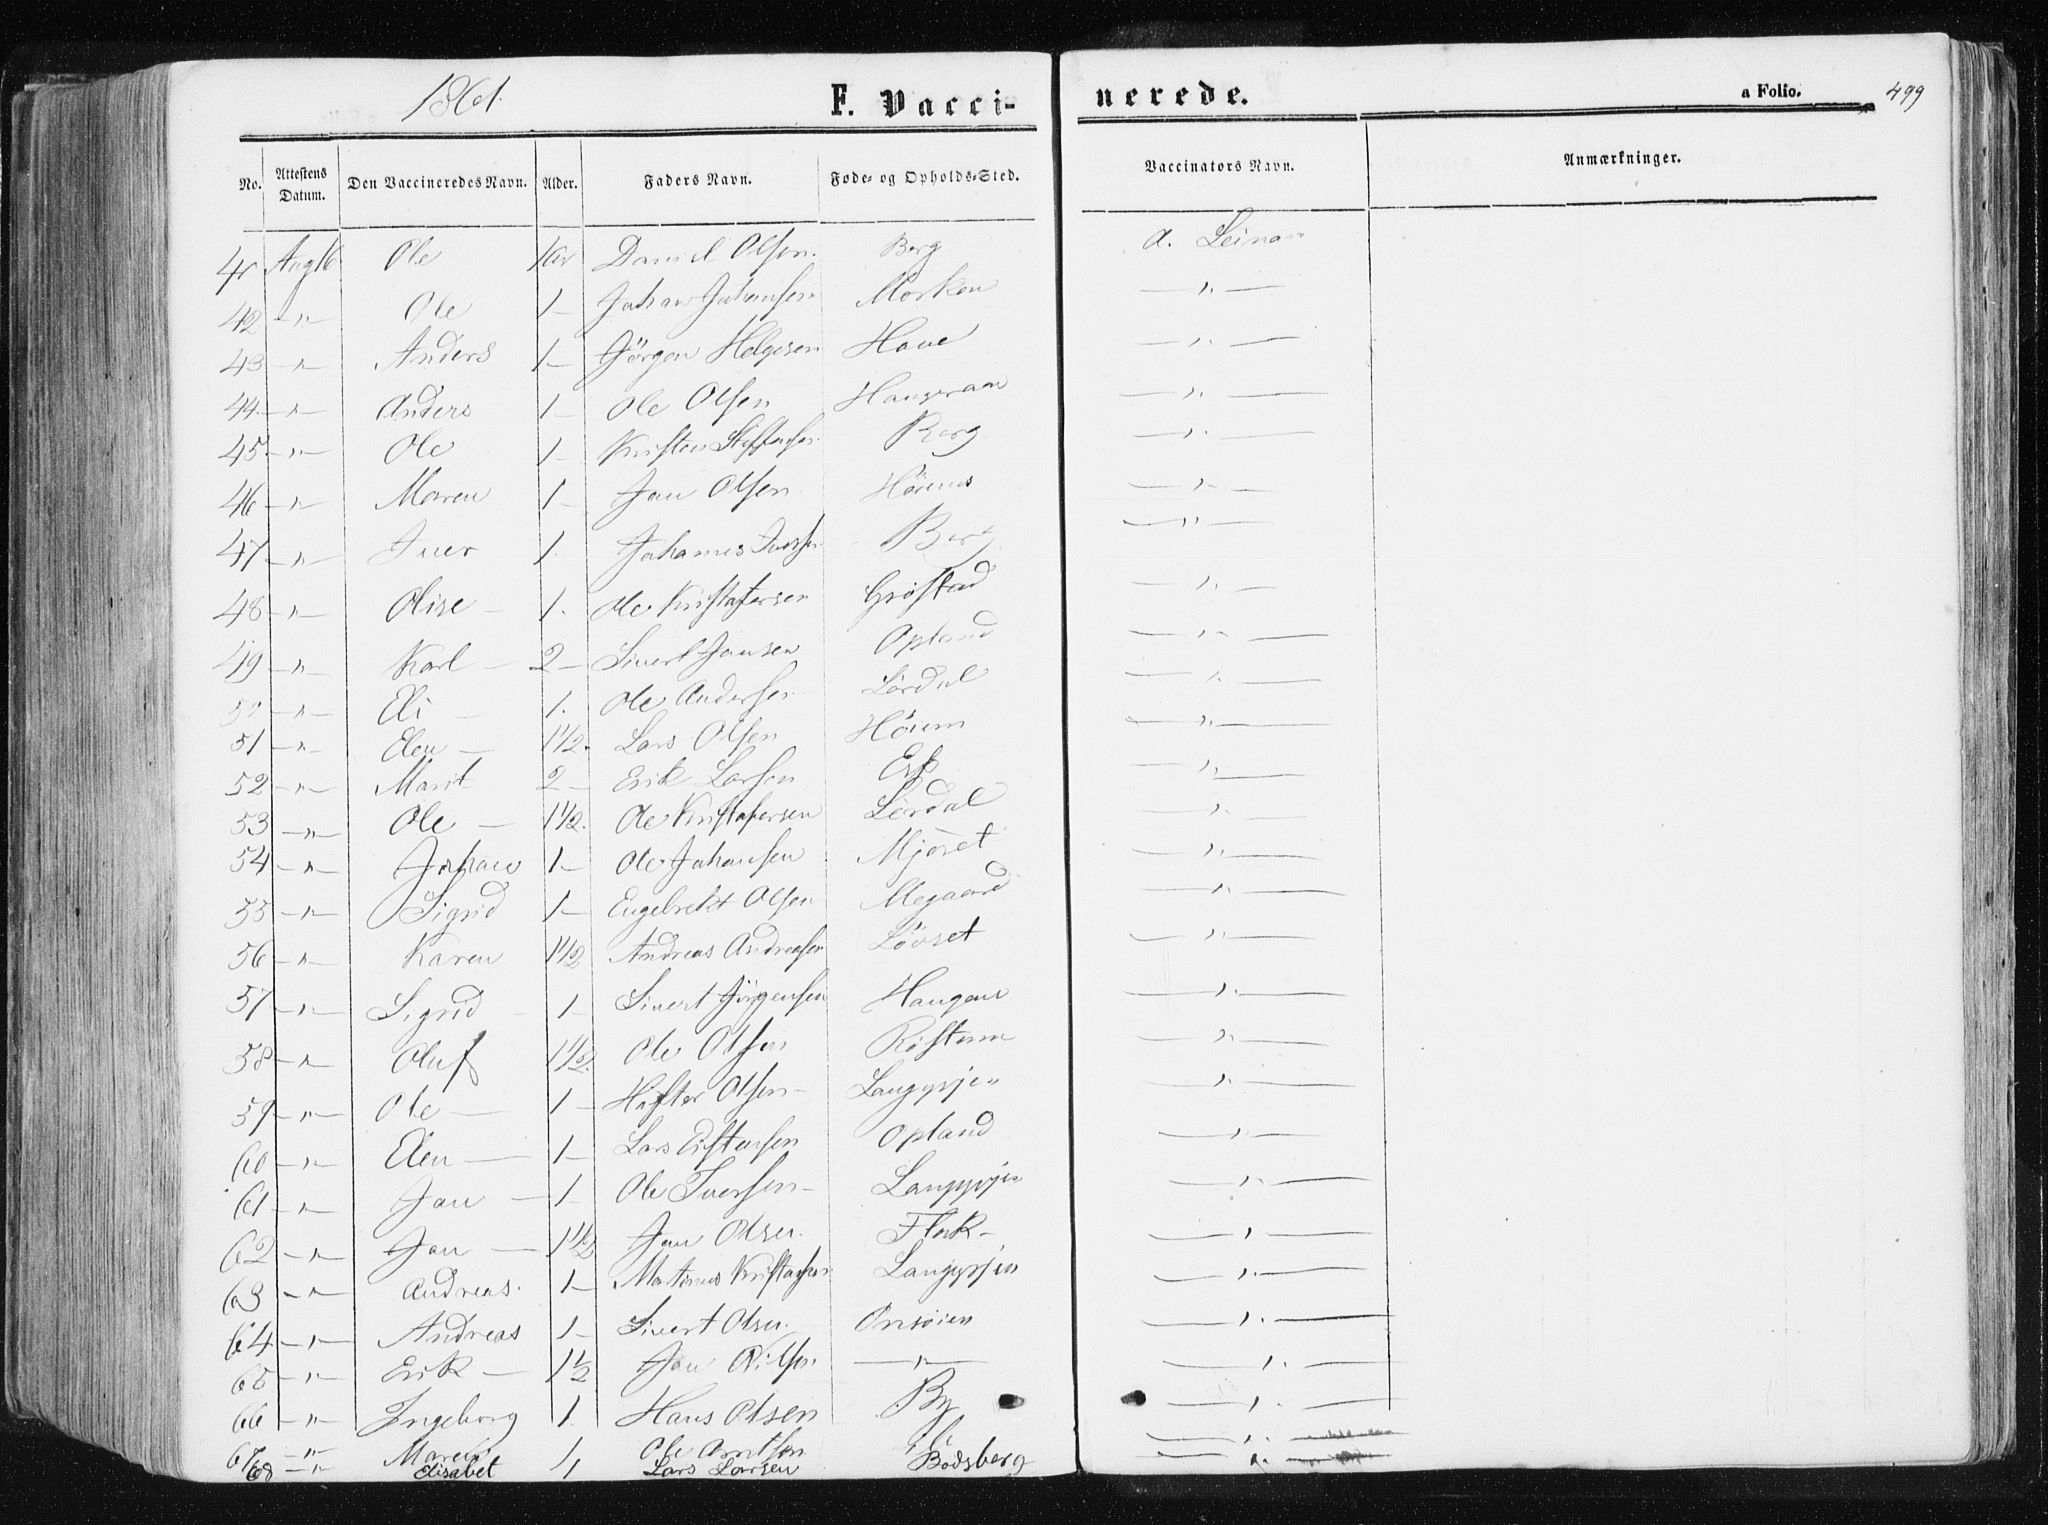 1861. F. Vacci- nerede. a Folio. 499
No. Attestens Datum. Den Vaccineredes Navn. Alder. Faders Navn. Føde- og Opholds-Sted. Vaccinators Navn. Anmærkninger.
41 Aug 16 Ole 1 Aar Daniel Olsen. Berg A. Leinan
42 —"— Ole 1— Johan Johansen Morken —"—
43 —"— Anders 1— Jörgen Helgesen Hove —"—
44. —"— Anders 1— Ole Olsen —"—
45. —"— Ole 1— Kristen Steffensen Berg —"—
46 —"— Maren 1— Jon Olsen —"—
47 —"— Iver 1. Johannes Iversen Berg —"—
48 —"— Olise — 1. Ole Kristofersen Gröstad —"—
49 —"— Karl — 2— Sivert Jonsen Opland —"—
50 —"— Eli — 1. Ole Andersen Lördal —"—
51 —"— Elen — 1 1/2. Lars Olsen Höiem —"—
52 —"— Marit 2— Erik Larsen Esp —"—
53 —"— Ole — 1 1/2. Ole Kristofersen Lördal —"—
54 —"— Johan 1— Ole Johansen Mjöset —"—
55 —"— Sigrid 1— Engebrekt Olsen Megaard —"—
56 —"— Karen 1 1/2 Andreas Andreasen Lövset —"—
57 —"— Sigrid — 1— Sivert Jörgensen Haugen —"—
58 —"— Oluf 1 1/2. Ole Olsen Röstum —"—
59 —"— Ole — 1— Olsen — Langørjen —"—
60 —"— Elen — 1— Lars Eistensen Opland —"—
61 —"— Jon — 1— Ole Iversen — Langørjen —"—
62 —"— Jon — 1 1/2 Jon Olsen. Flock — —"—
63 —"— Andreas. 1— Martinus Kristofersen Langørjen —"—
64 —"— Andreas 1— Sivert Olsen. Onsöien —"—
65 —"— Erik — 1 1/2 Jon —"— —"—
66 —"— Ingeborg 1. Hans Olsen By —"—
67 —"— Maren Ole Arntsen —"—
68 —"— Elisabet 1 Lars Larsen Bodsberg —"—